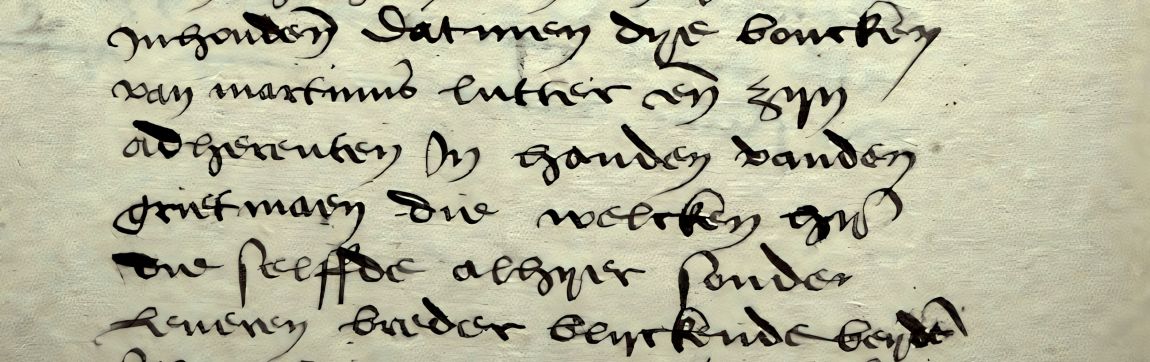 Inhouden datmen dye boucken
van martinus lutter en zijn
adherenten In handen vanden
grietmaen die welcken hij
die selffde alhyer sonder
leueren breder blijckende beyde